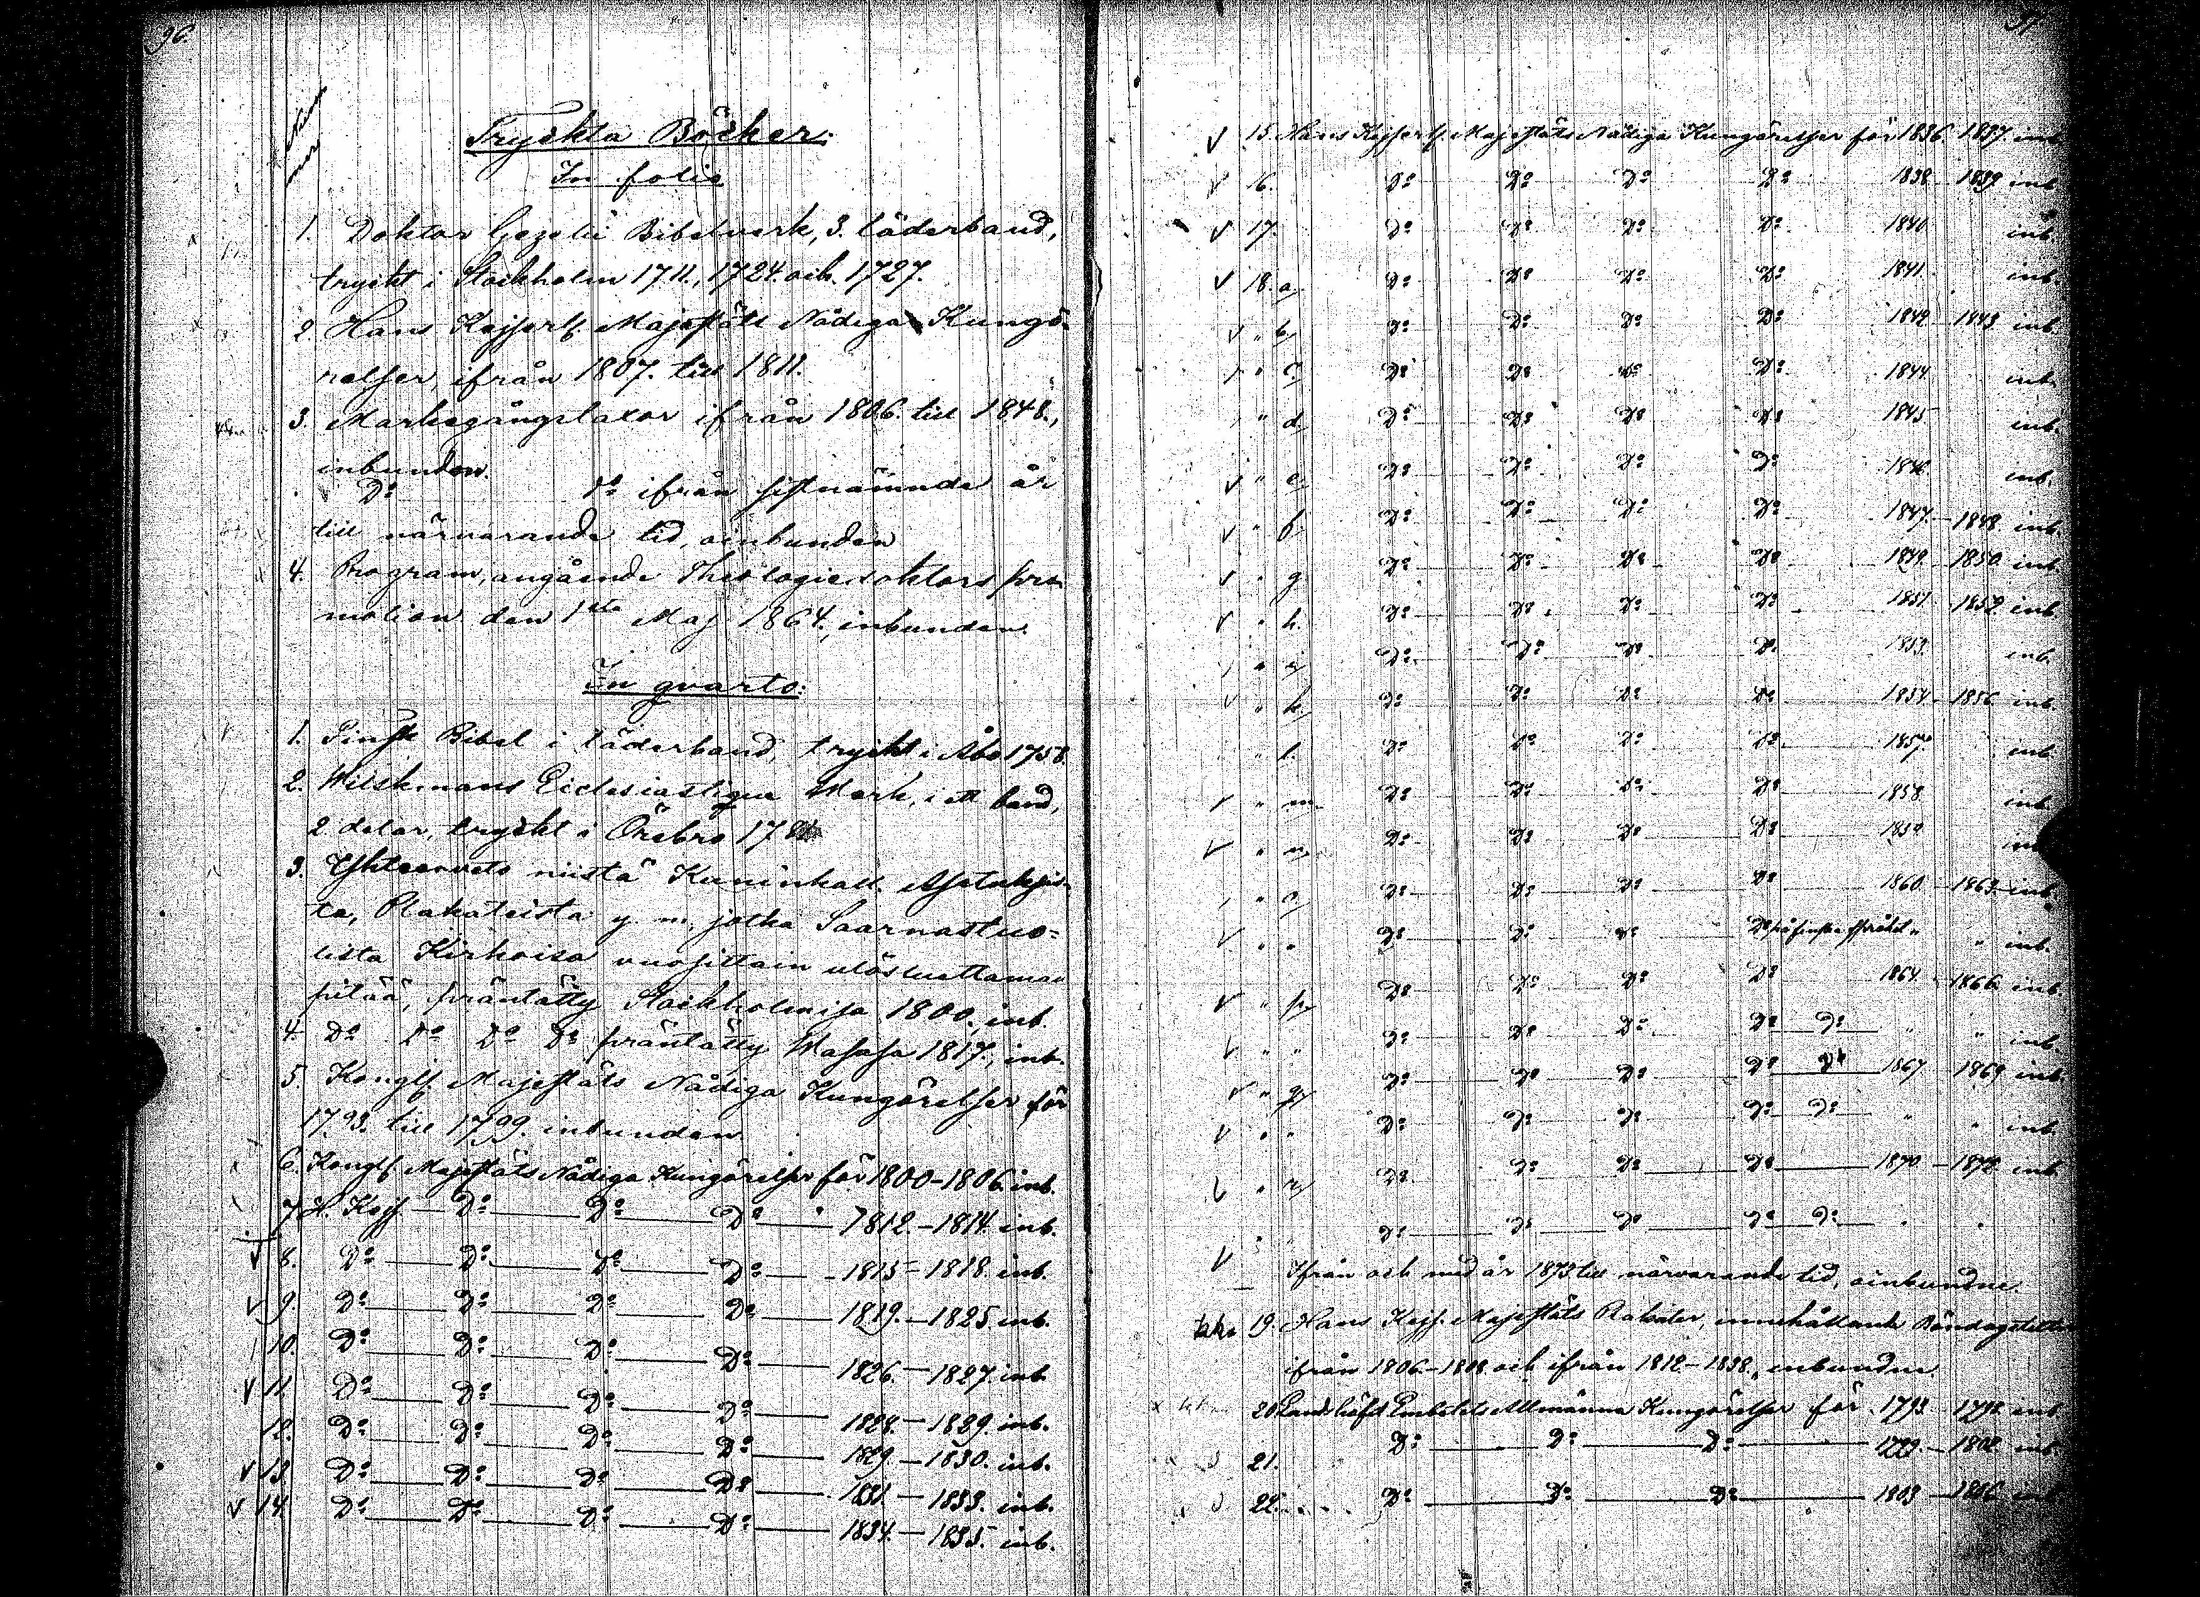 96.
Tryckta Böcker.
In folio
1. Doktor Gezelii Bibelverk, 3. läderband,
tryckt i Stockholm 1711., 1724. och. 1727.
2. Hans Kejserl. Majestäts Nådiga Kungö-
relser, ifrån 1807. till 1811.
3. Markegångstaxor ifrån 1806. till 1848.,
inbunden.
Do do ifrån sistnämnde år
till närvarande tid, oinbunden
4. Program, angående Theologiedoktors pro-
motion den 1sta Maj 1864., inbunden.
In qvarto:
1. Finsk Bibel i läderband, tryckt i Åbo 1758.
2. Wilskmans Eiclesiastique Werk, i ett band,
2 delar, tryckt i Örebro
3. Yhteenveto niistä Kuninkall. Asetuksis-
ta, Plakateista y. m, jotka Saarnastuo=
lista Kirkoisa vuosittain ulösluettaman
pitää, präntätty Stockholmisa 1800. inb.
4. Do Do Do Do präntätty Wasasa 1817., inb.
5. Kongl. Majestäts Nådiga Kungörelser för
1793. till 1799. inbunden
6. Kongl. Majestäts Nådiga Kungörelser för 1800-1806. inb.
7. H. Kejs. Do Do Do 1812.-1814. inb.
√ 8. Do Do Do Do 1815-1818. inb.
√ 9. Do Do Do Do 1819.-1825. inb.
10. Do Do Do Do 1826.-1827. inb.
√ 11. Do Do Do Do 1828.-1829. inb.
12. Do Do Do Do 1829.-1830. inb.
√ 13. Do Do Do Do 1831.-1833. inb.
√ 14. Do Do Do Do 1834.-1835. inb.
97.
√ 15. Hans Kejserl. Majestäts Nådiga Kungörelser för 1836. 1837. inb
√ 16. Do Do Do Do 1838-1839 inb.
√ 17. Do Do Do Do 1840 inb.
√ 18. a, Do Do Do Do 1841. inb.
√ " b, Do Do Do Do 1842-1843 inb.
" c, Do Do Do Do 1844. inb.
" d, Do Do Do Do 1845 inb.
√ " e, Do Do Do Do 1846 inb.
√ " f. Do Do Do Do 1847.-1848 inb.
√ " g. Do Do Do Do 1849.-1850. inb
√ " h. Do Do Do Do 1851.-1852 inb.
" i, Do Do Do Do 1853. inb.
√ " k, Do Do Do Do 1854.-1856 inb.
" l. Do Do Do Do 1857. inb.
√ " m. Do Do Do Do 1858. inb
√ " n, Do Do Do Do 1859
" o, Do Do Do Do 1860-1863 inb.
√ " " Do Do Do Do på finska språket " " inb.
√ " p, Do Do Do Do 1864.-1866 inb.
√ " " Do Do Do Do Do " " inb.
√ " q, Do Do Do Do 1867 1869 inb.
√ " " Do Do Do Do Do " " inb.
√ " r, Do Do Do Do 1870-1872 inb
√ " " Do Do Do Do Do " "
Ifrån och med år 1873 till närvarande tid, oinbundne.
19. Hans Kejs. Majestäts Plakater, innehållande Böndags
ifrån 1806.-1808. och ifrån 1812-1838., inbundne.
20. Landshöfd. Embetets Allmänna Kungörelser för 1793 inb
21. Do Do Do 1799.-1802 inb
22. Do Do Do 1803-1806